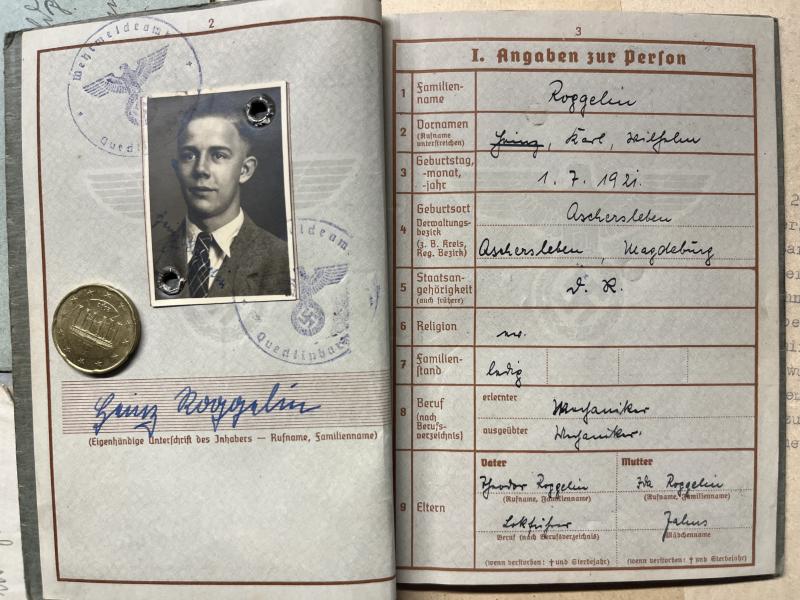 2
Wehrmeldeamt
Quedlinburg
Wehrmeldeamt
Quedlinburg
Heinz Roggelin
(Eigenhändige Unterschrift des Inhabers — Rufname, Familienname)
3
I. Angaben zur Person
1 Familien-
name
Roggelin
2 Vornamen
(Rufname
unterstreichen)
Heinz, Karl, Wilhelm
3 Geburtstag,
-monat,
-jahr
1. 7. 1921.
4 Geburtsort
Verwaltungs-
bezirk
(z. B. Kreis,
Reg. Bezirk)
Aschersleben
Aschersleben, Magdeburg
5 Staatsan-
gehörigkeit
(auch frühere)
D. R.
6 Religion
ev.
7 Familien-
stand
ledig
8 Beruf
(nach
Berufs-
verzeichnis)
erlernter
Mechaniker
ausgeübter
Mechaniker.
9 Eltern
Vater
Theodor Roggelin
(Rufname, Familienname)
Lokführer
Beruf (nach Berufsverzeichnis)
(wenn verstorben: † und Sterbejahr)
Mutter
Ida Roggelin
(Rufname, Familienname)
Jahns
Mädchenname
(wenn verstorben: † und Sterbejahr)